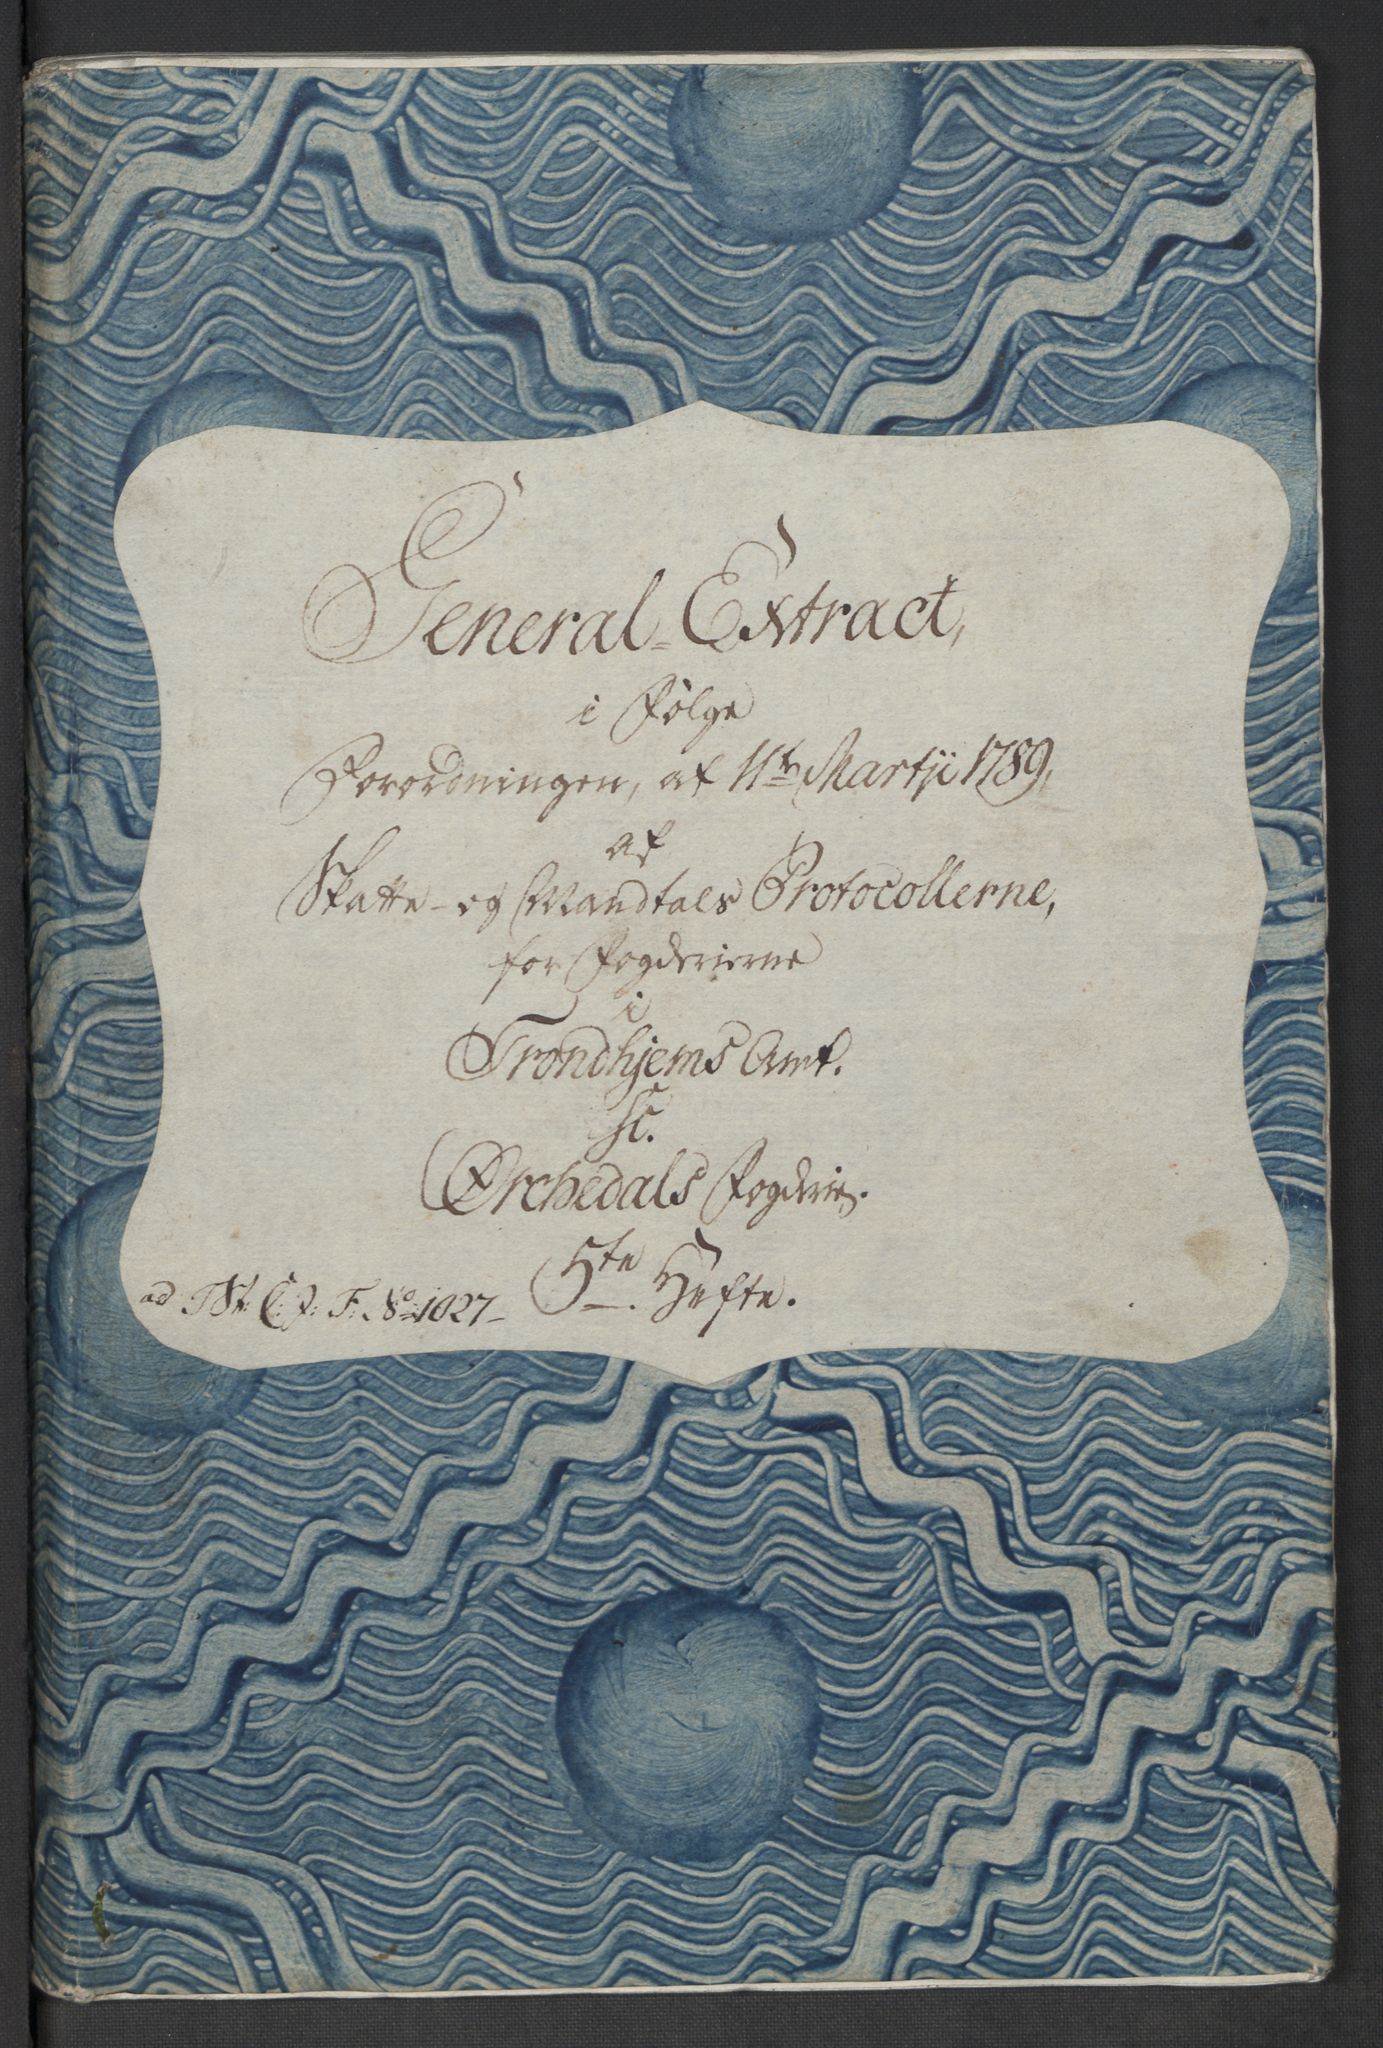 General-Extract,
i Følge
Forordningen, af 11te Martji 1789,
af
Skatte- og Mandtals Protocollerne,
for Fogderierne
i
Trondhjems Amt.
Sc.
Ørchedals Fogderie.
5te Hefte.
ad T St: C: J: F: No 1027-